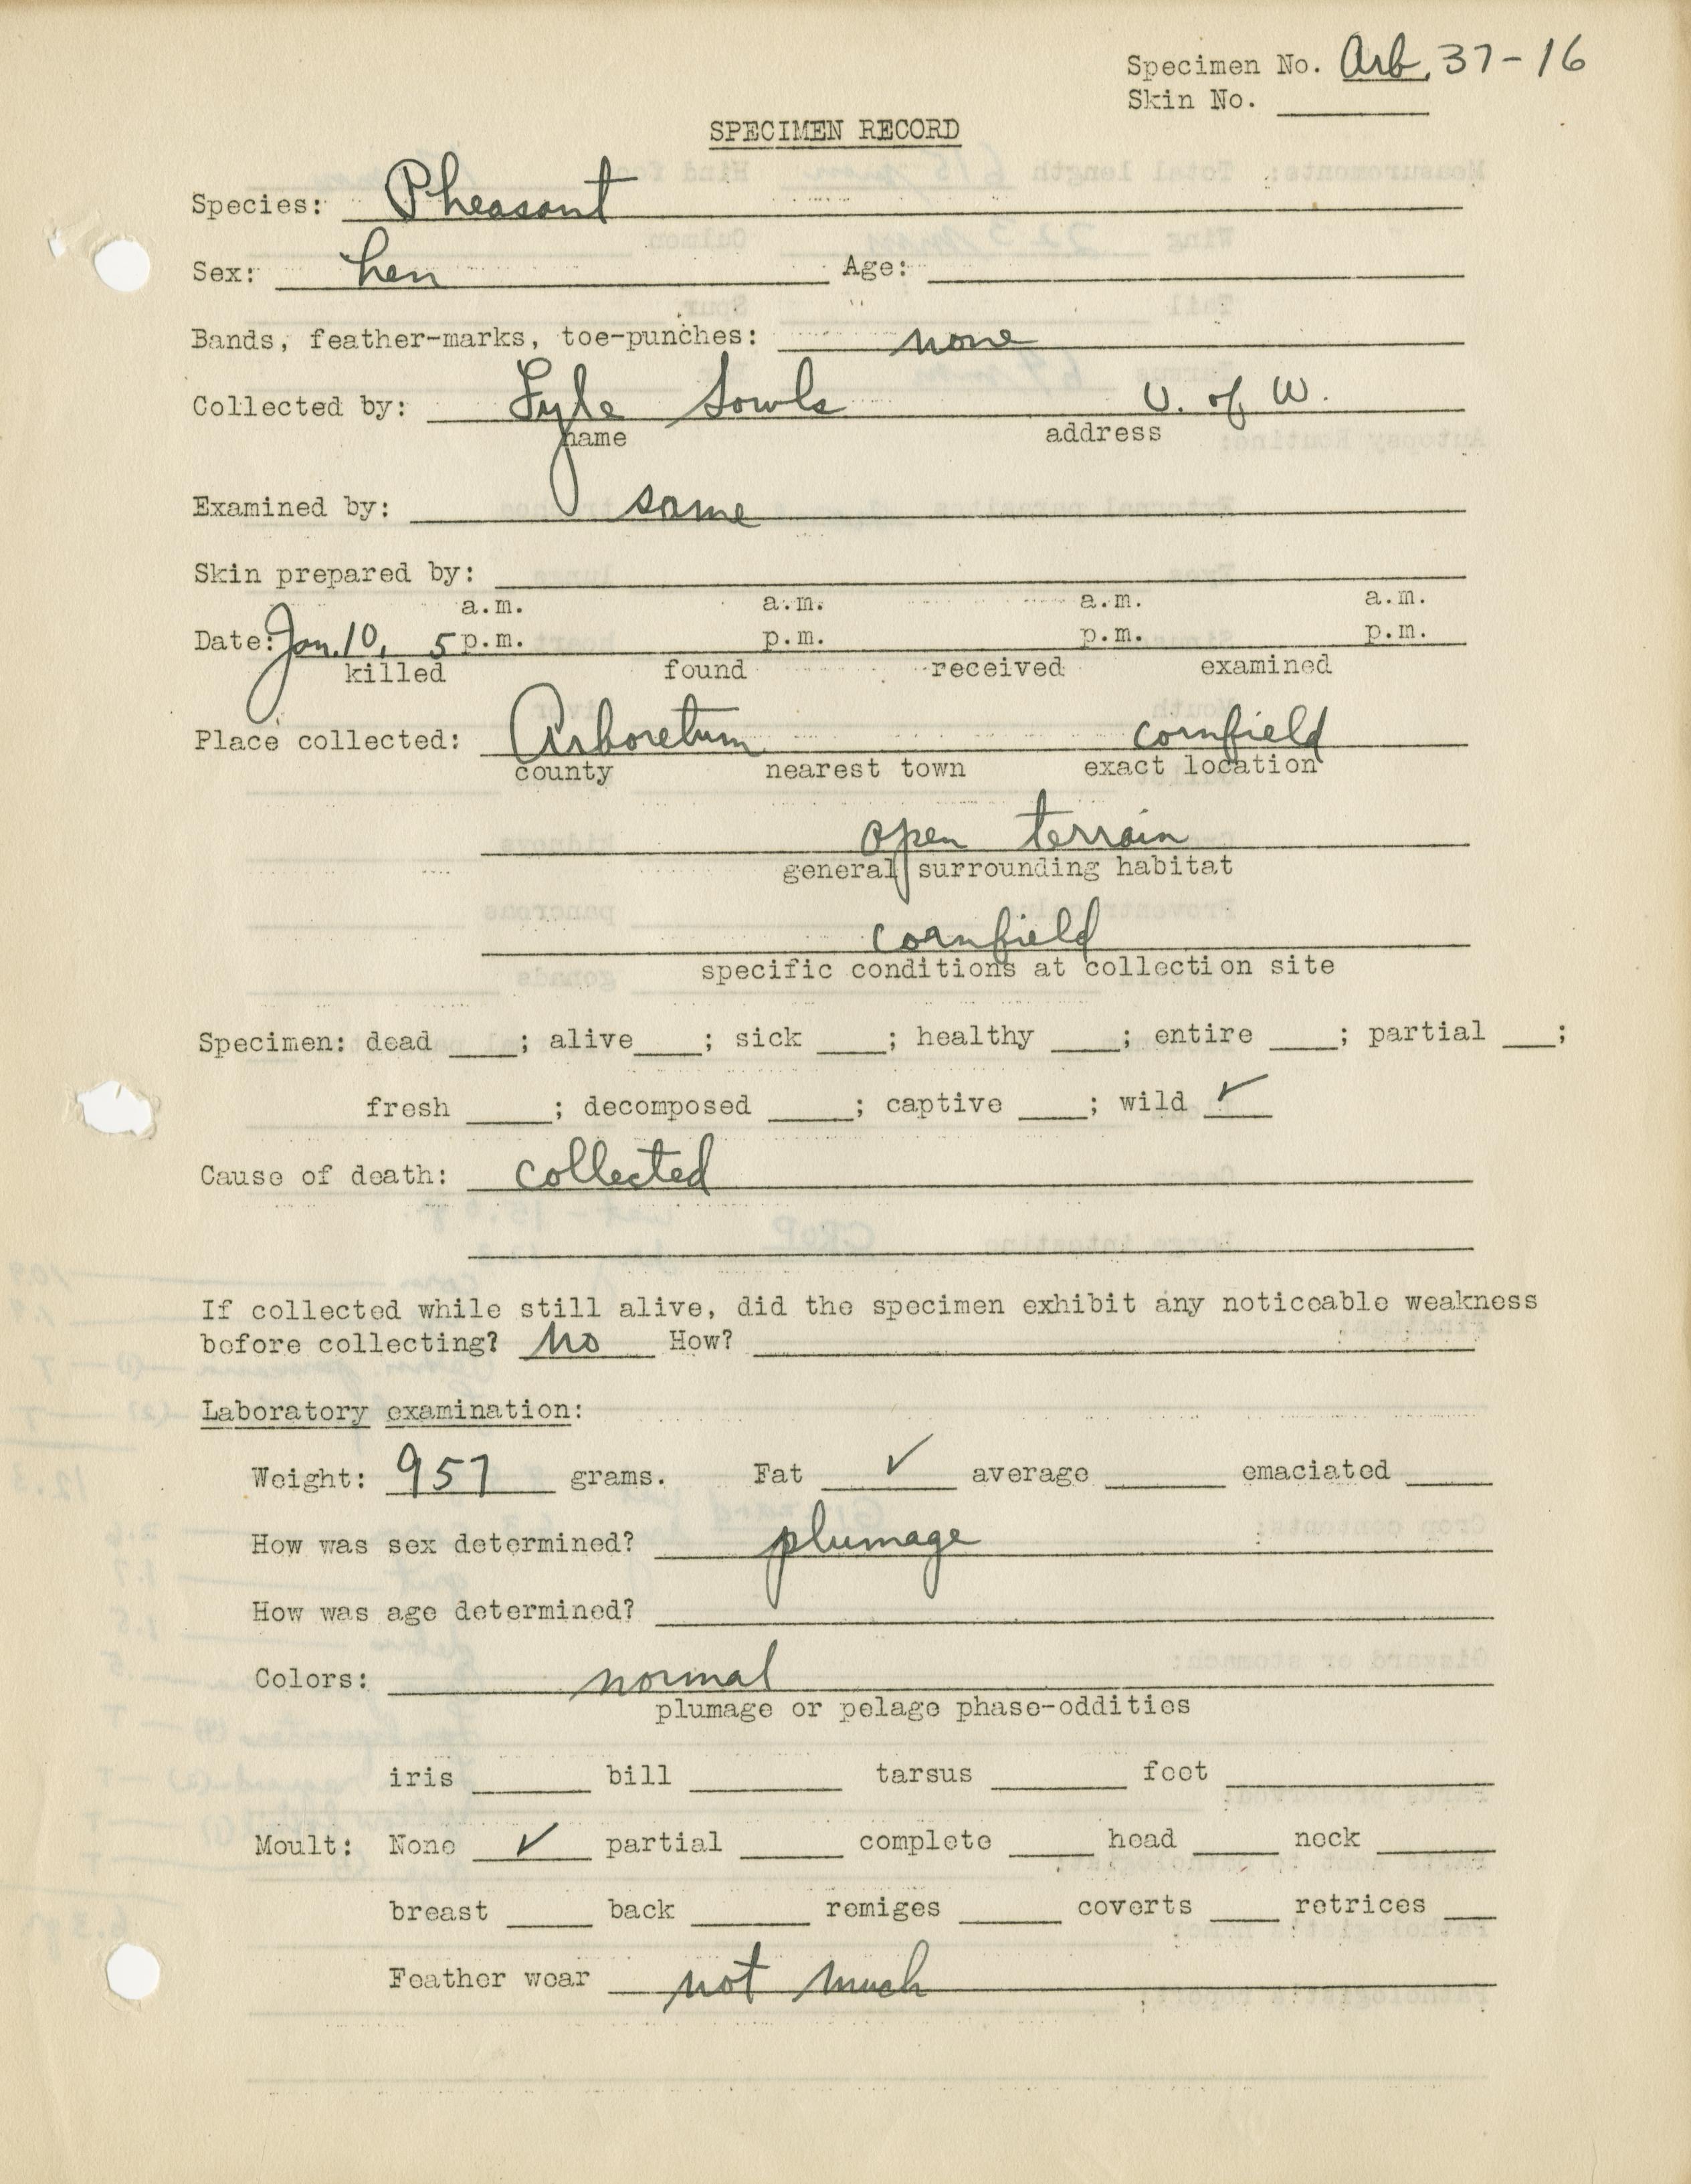 Specimen No. Arb. 37-16
Skin No.
SPECIMEN RECORD
Species: Pheasant
Sex: hen Age:
Bands, feather-marks, toe-punches: none
Collected by: Lyle Sowls U. of W.
name address
Examined by: same
Skin prepared by:
a.m. a.m. a.m. a.m.
Date: Jan. 10, 5 p.m. p.m. p.m. p.m.
killed found received examined
Place collected: Arboretum cornfield
county nearest town exact location
open terrain
general surrounding habitat
cornfield
specific conditions at collection site
Specimen: dead ____; alive____; sick ____; healthy ____; entire ____; partial ___;
fresh _____; decomposed _____; captive ____; wild ✓
Cause of death: collected
If collected while still alive, did the specimen exhibit any noticeable weakness
before collecting? no How?
Laboratory examination:
Weight: 957 grams. Fat ✓ average emaciated
How was sex determined? plumage
How was age determined?
Colors: normal
plumage or pelage phase-oddities
iris bill tarsus foot
Moult: None ✓ partial complete head neck
breast back remiges coverts retrices
Feather wear not much